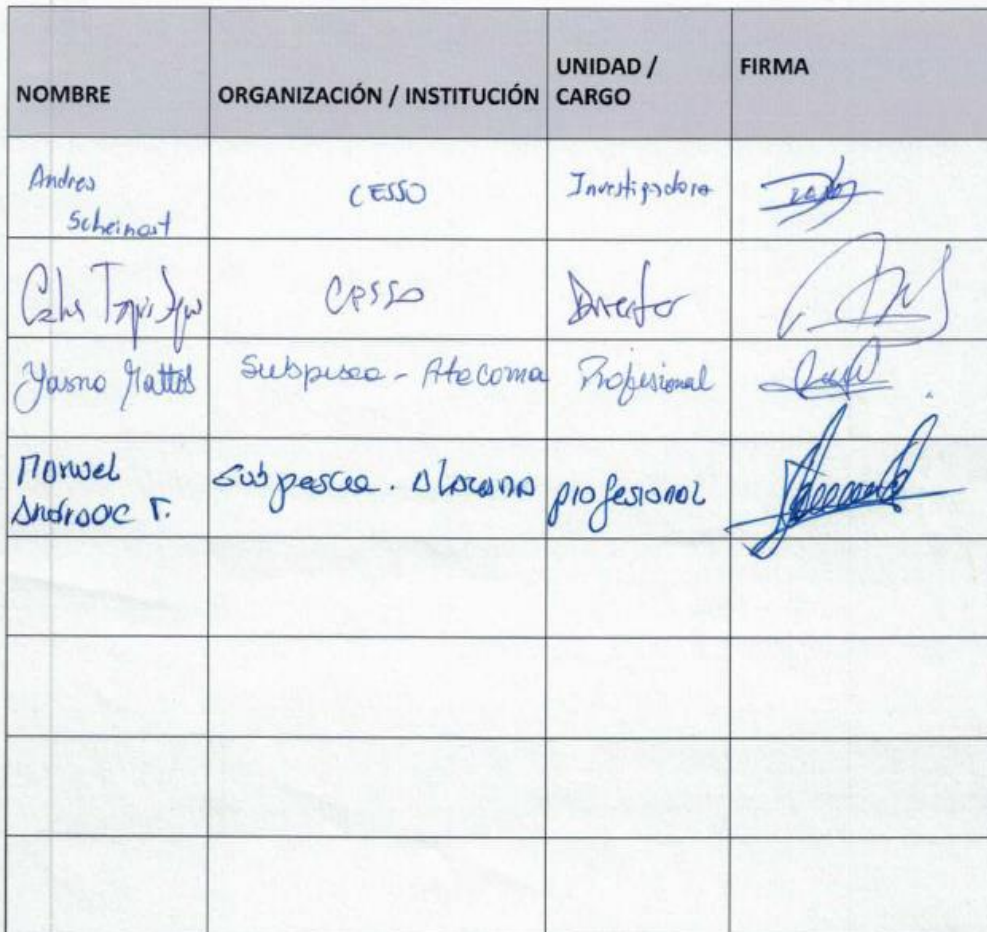 NOMBRE ORGANIZACIÓN / INSTITUCIÓN UNIDAD / CARGO FIRMA
Andres CESSO Investigadora
Scheinost
CESSO Director
Yasna Mattos Subpesca - Atacama Profesional
Manuel Subpesca. Atacama profesional
Andrade T.